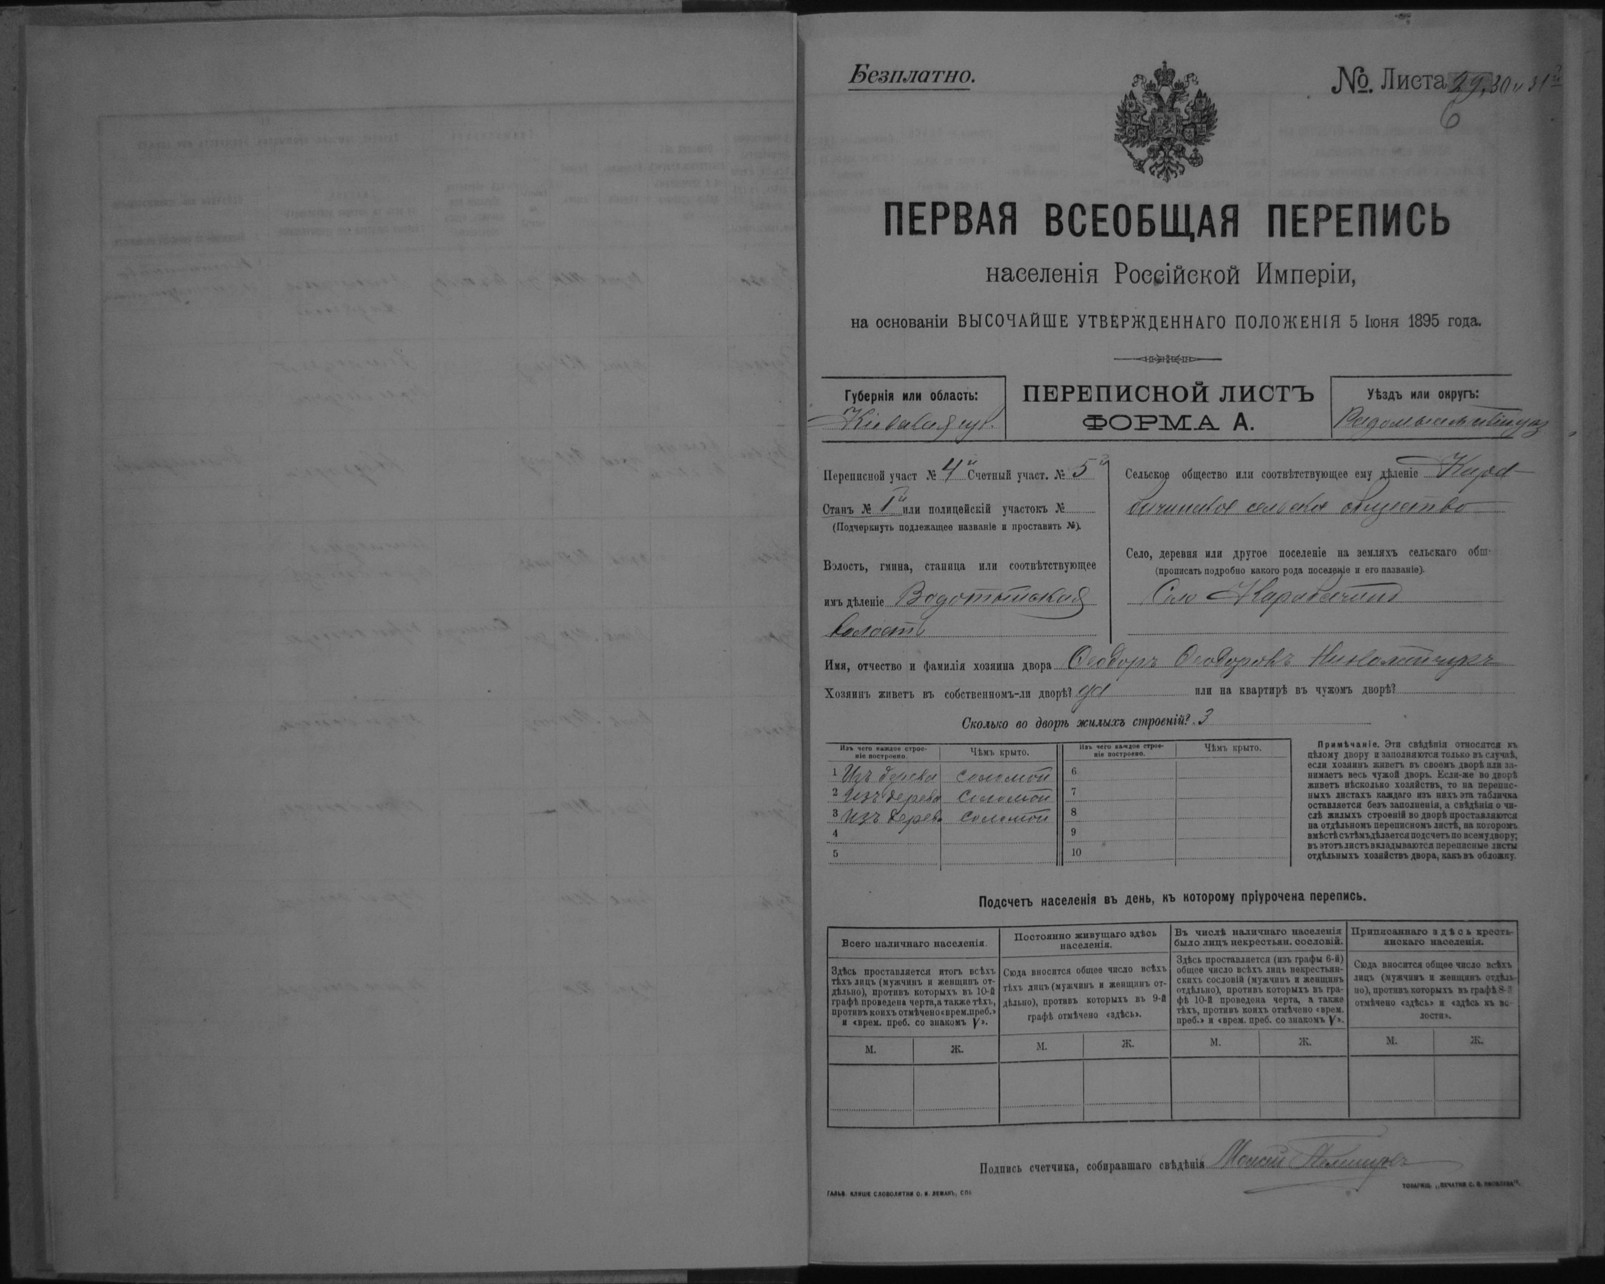 Безплатно.
№ Листа 29, 30 и 31й
6
ПЕРВАЯ ВСЕОБЩАЯ ПЕРЕПИСЬ
населенія Россійской Имперіи,
на основаніи ВЫСОЧАЙШЕ УТВЕРЖДЕННАГО ПОЛОЖЕНІЯ 5 Іюня 1895 года.
Губернія или область:
Кіевская губ.
ПЕРЕПИСНОЙ ЛИСТЪ
ФОРМА А.
Уѣздъ или округъ:
Переписной участ № 4й Счетный участ. № 5й
Станъ № 1й или полицейскій участокъ №
(Подчеркнуть подлежащее названіе и проставить №).
Волость, гмина, станица или соотвѣтствующее
имъ дѣленіе Водотыйская
волость
Сельское общество или соотвѣтствующее ему дѣленіе Кара-
бачинское сельское общество
Село, деревня или другое поселеніе на земляхъ сельскаго общ-
(прописать подробно какого рода поселеніе и его названіе).
Село Карабачинъ
Имя, отчество и фамилія хозяина двора Феодоръ Феодоровъ
Хозяинъ живетъ въ собственномъ-ли дворѣ? да или на квартирѣ въ чужомъ дворѣ?
Сколько во дворѣ жилыхъ строеній? 3
Изъ чего каждое строе-
ніе построено.
Чѣмъ крыто.
1 Изъ дерева соломой
2 Изъ дерева соломой
3 Изъ дерева соломой
4
5
Изъ чего каждое строе-
ніе построено.
Чѣмъ крыто.
6
7
8
9
10
Примѣчаніе. Эти свѣдѣнія относятся къ
цѣлому двору и заполняются только въ случаѣ,
если хозяинъ живетъ въ своемъ дворѣ или за-
нимаетъ весь чужой дворъ. Если-же во дворѣ
живетъ нѣсколько хозяйствъ, то на перепис-
ныхъ листахъ каждаго изъ нихъ эта табличка
оставляется безъ заполненія, а свѣдѣнія о чи-
слѣ жилыхъ строеній во дворѣ проставляются
на отдѣльномъ переписномъ листѣ, на которомъ
вмѣстѣ съ тѣмъ дѣлается подсчетъ по всему двору;
въ этотъ листъ вкладываются переписные листы
отдѣльныхъ хозяйствъ двора, какъ въ обложку.
Подсчетъ населенія въ день, къ которому пріурочена перепись.
Всего наличнаго населенія.
Здѣсь проставляется итогъ всѣхъ
тѣхъ лицъ (мужчинъ и женщинъ от-
дѣльно), противъ которыхъ въ 10-й
графѣ проведена черта, а также тѣхъ,
противъ коихъ отмѣчено «врем.преб.»
и «врем. преб. со знакомъ V».
М. Ж.
Постоянно живущаго здѣсь
населенія.
Сюда вносится общее число всѣхъ
тѣхъ лицъ (мужчинъ и женщинъ от-
дѣльно), противъ которыхъ въ 9-й
графѣ отмѣчено «здѣсь».
М. Ж.
Въ числѣ наличнаго населенія
было лицъ некрестьян. сословій.
Здѣсь проставляется (изъ графы 6-й)
общее число всѣхъ лицъ некрестьян-
скихъ сословій (мужчинъ и женщинъ
отдѣльно), противъ которыхъ въ гра-
фѣ 10-й проведена черта, а также
тѣхъ, противъ коихъ отмѣчено «врем.
преб.» и «врем. преб. со знакомъ V».
М. Ж.
Приписаннаго здѣсь кресть-
янскаго населенія.
Сюда вносится общее число всѣхъ
лицъ (мужчинъ и женщинъ отдѣль-
но), противъ которыхъ въ графѣ 8-й
отмѣчено «здѣсь» и «здѣсь къ во-
лости».
М. Ж.
Подпись счетчика, собиравшаго свѣдѣнія Моисей
ГАЛЬВ. КЛИШЕ СЛОВОЛИТНИ О. И. ЛЕМАНЪ, СПБ